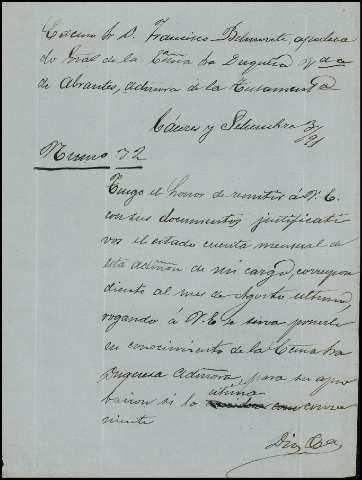 Excmo Sr D. Francisco Belmonte, apodera
do Gral de la Excma Sra Duquesa Vda
de Abrantes, admora de la Testamentª
Cáceres y Setiembre 3/91
Numo 72
Tengo el honor de remitir á V.E.
con sus documentos justificati
vos el estado cuenta mensual de
esta admon de mi cargo, correspon
diente al mes de Agosto ultimo,
rogando á V.E. se sirva ponerlo
en conocimiento de la Excma Sra
Duquesa Admora, para su apro
bacion si lo estima
conve
niente